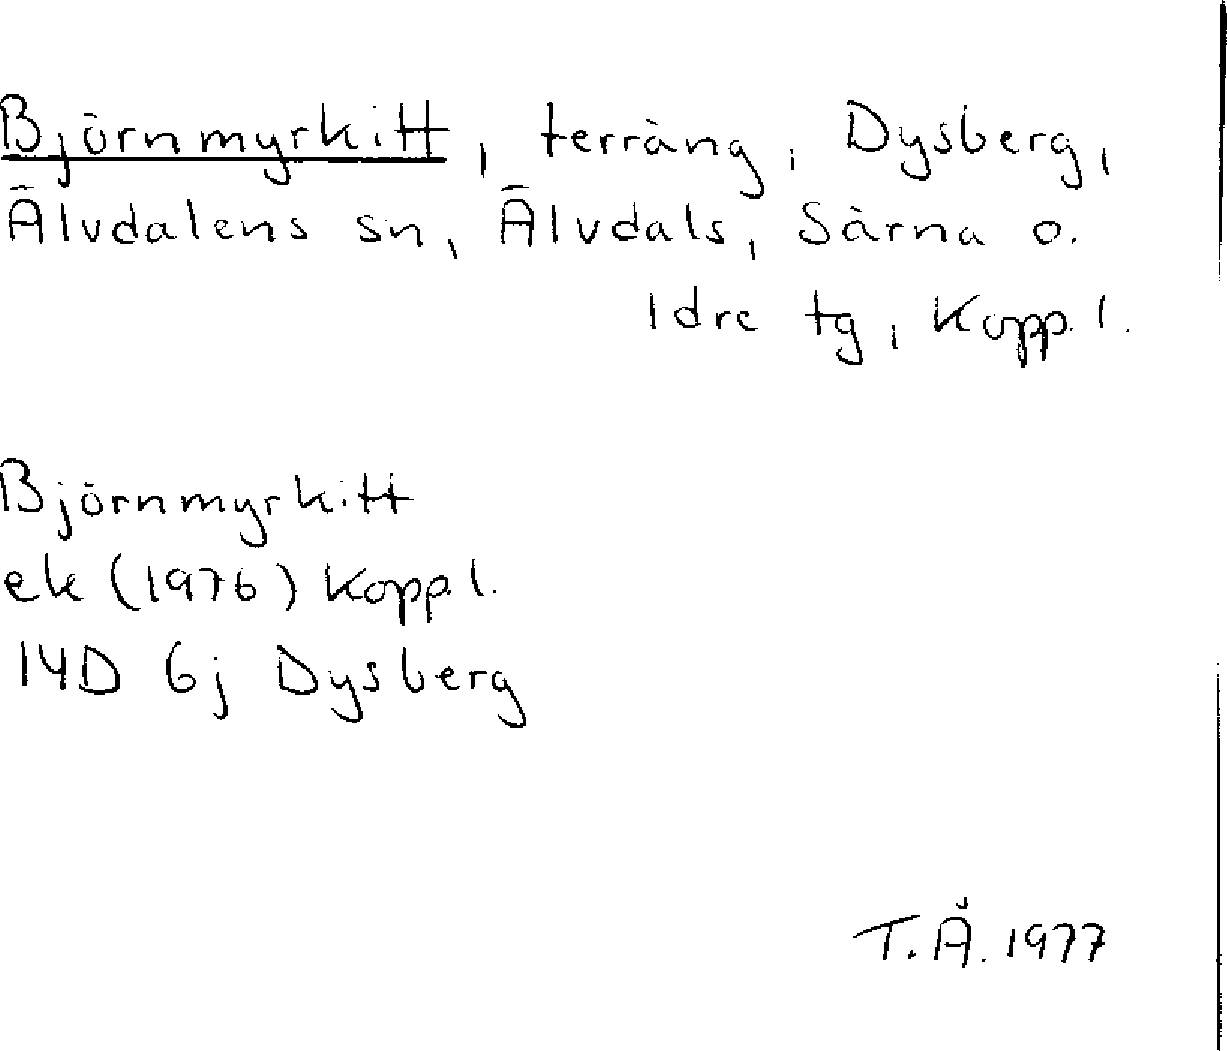 Björnmyrkitt, terräng, Dysberg,
Älvdalens sn, Älvdals, Särna o.
Idre tg, Kopp. l.
Björnmyrkitt
ek (1976) Kopp. l.
14D 6j Dysberg
T.Å. 1977